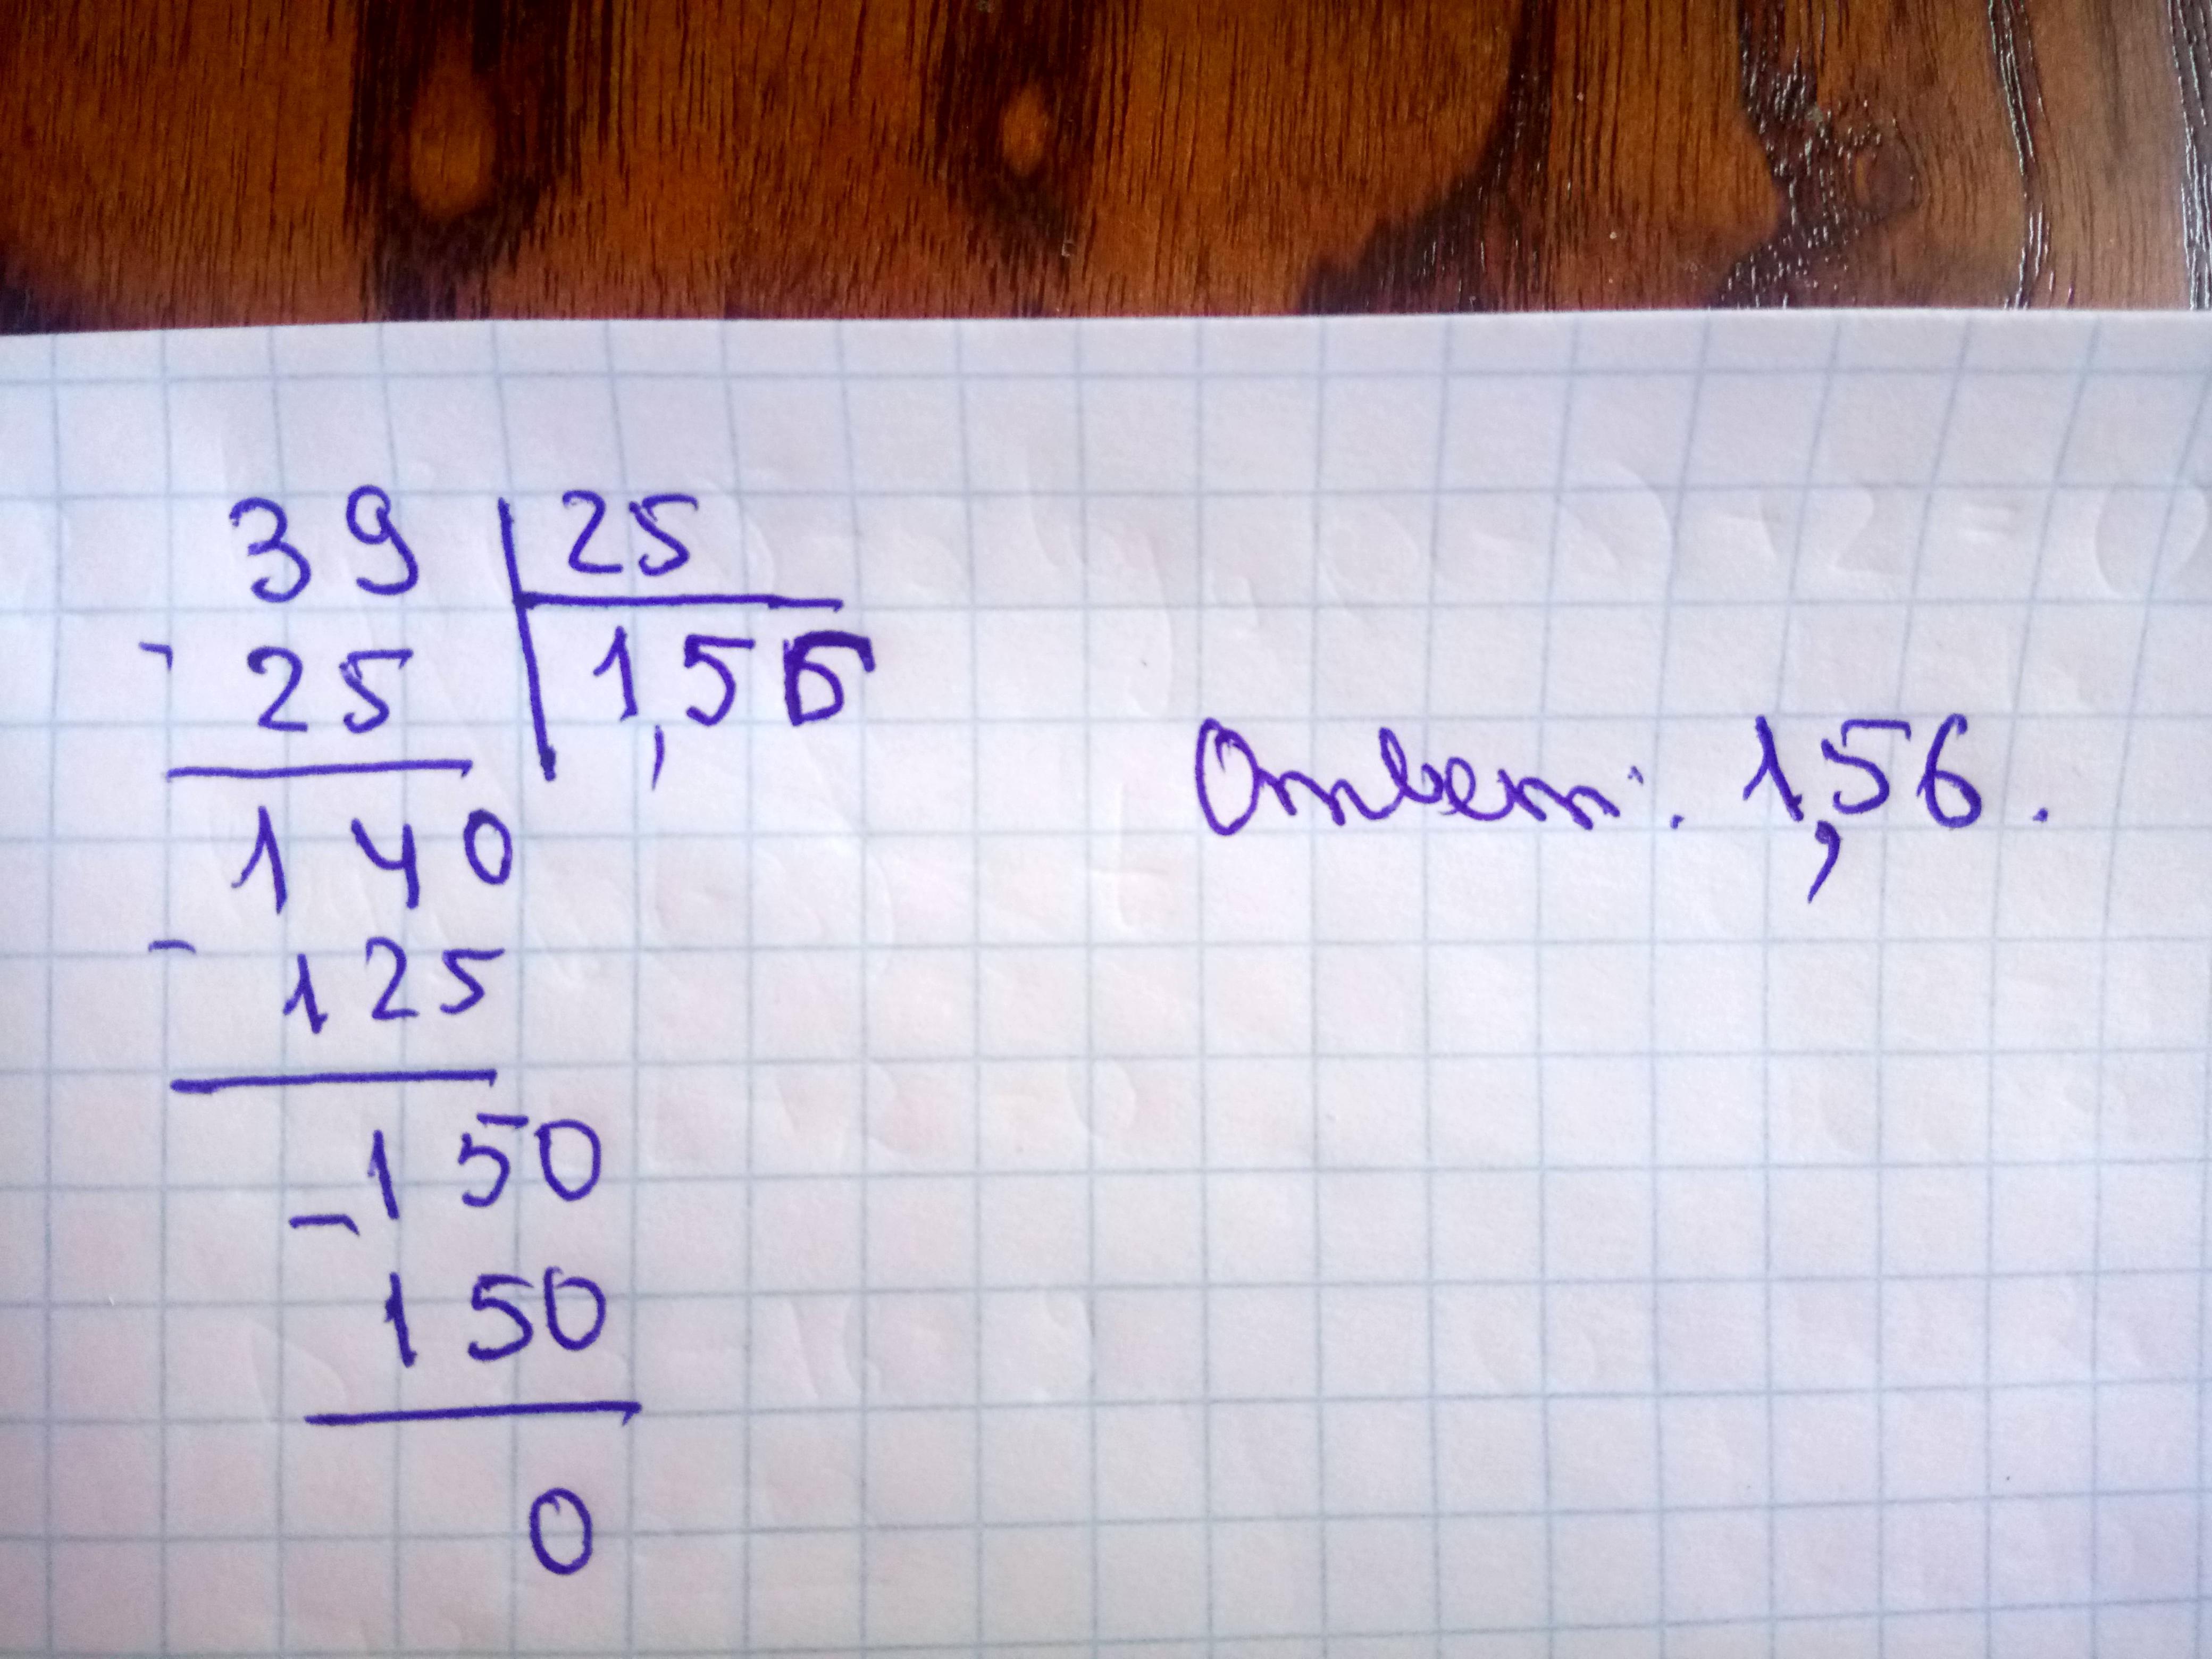 39 25
- 25 1,56
140
- 125
150
- 150
0
Ответ: 1,56.